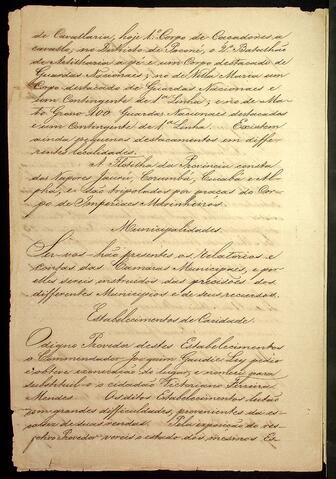 de Cavallaria, hoje 1º Corpo de Caçadores a
cavallo, no Districto de Poconé, o 2º Batalhão
de Artilharia a pé e um Corpo destacado de
Guardas Nacionaes; no de Villa Maria um
Corpo destacado de Guardas Nacionaes e
um Contingente de 1ª Linha; e no de Ma-
to Grosso 100 Guardas Nacionaes destacados
e um Contingente de 1ª Linha. Existem
ainda pequenos destacamentos em diffe-
rentes localidades.
A Flotilha da Provincia consta
dos Vapores Jaurú, Corumbá, Cuiabá e Al-
pha, e são tripolados por praças do Cor-
po de Imperiaes Marinheiros.
Municipalidades
Ser-vos-hão presentes os Relatorios e
contas das Camaras Municipaes, e por
elles sereis instruidos das precisões dos
differentes Municipios e de seus recursos.
Estabelecimentos de Caridade
O digno Provedor destes Estabelecimentos
o Commendador Joaquim Gaudie Ley pedio
e obteve exoneração do lugar, e nomeei para
substituil-o o cidadão Victoriano
Mendes. Os ditos Estabelecimentos lutão
com grandes difficuldades, provenientes da es-
de suas rendas. Pela exposição do res-
pectivo Provedor vereis o estado dos mesmos Es-